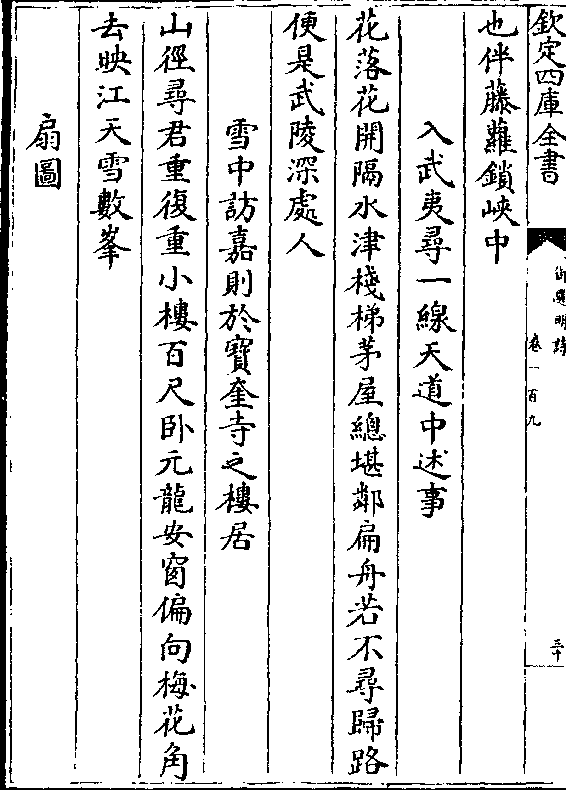 欽定四庫全書
御選明詩
卷一百九
三十
也伴藤蘿鎖峽中
入武夷尋一線天道中述事
花落花開隔水津棧梯茅屋總堪鄰扁舟若不尋歸路
便是武陵深處人
雪中訪嘉則於寶奎寺之樓居
山徑尋君重復重小樓百尺卧元龍安窗偏向梅花角
去映江天雪數峯
扇圖